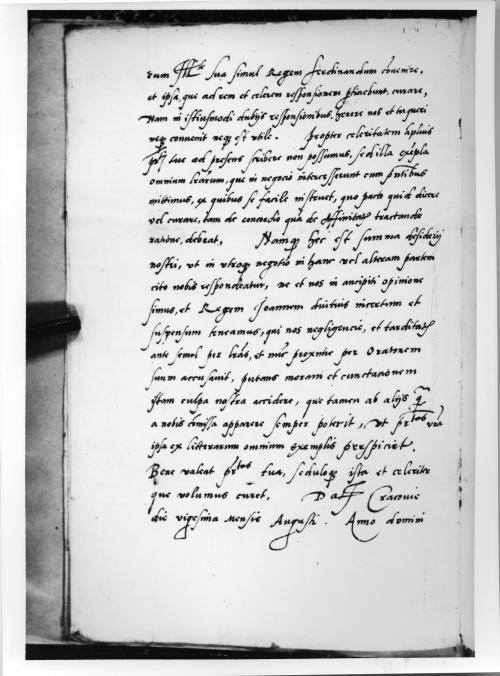 rum Mte sua simul Regem Ferdinandum cōvenire,
et ipsa, que ad rem et celerem responsionem ptinebunt curare,
Nam in istiusmodi dubijs responsionibus, herere nos et torqueri
neq convenit neq est utile. Propter celeritatem aplius
prti tue ad presens scribere non possumus, sed illa exēpla
omnium lrarum, que in negocio intercesserunt cum pntibus
mittimus, ex quibus se facile instruet, quo pacto quid dicere
vel curare, tam de concordia quā de Affinitatis tractande
ratione, debeat, Namq hec est summa desiderij
nostri, ut in utroq negotio in hanc vel alteram partem
cito nobis respondeatur, ne et nos in ancipiti opinione
simus, et Regem Joannem diutius incertum et
suspensum teneamus, qui nos negligencie, et tarditatis
ante semel per lrās, et nūc proxime per Oratorem
suum accusavit, putans moram et cunctacionem
istam culpa nostra accidere, que tamen ab alijs q̄
a nobis cōmissa apparere semper poterit, ut prtas vrā
ipsa ex litterarum omnium exemplis perspiciet.
Bene valeat prtas tua, seduloq ista et celeriter
que volumus curet, Dat Cracovie
die vigesima mensis Augusti. Anno domini